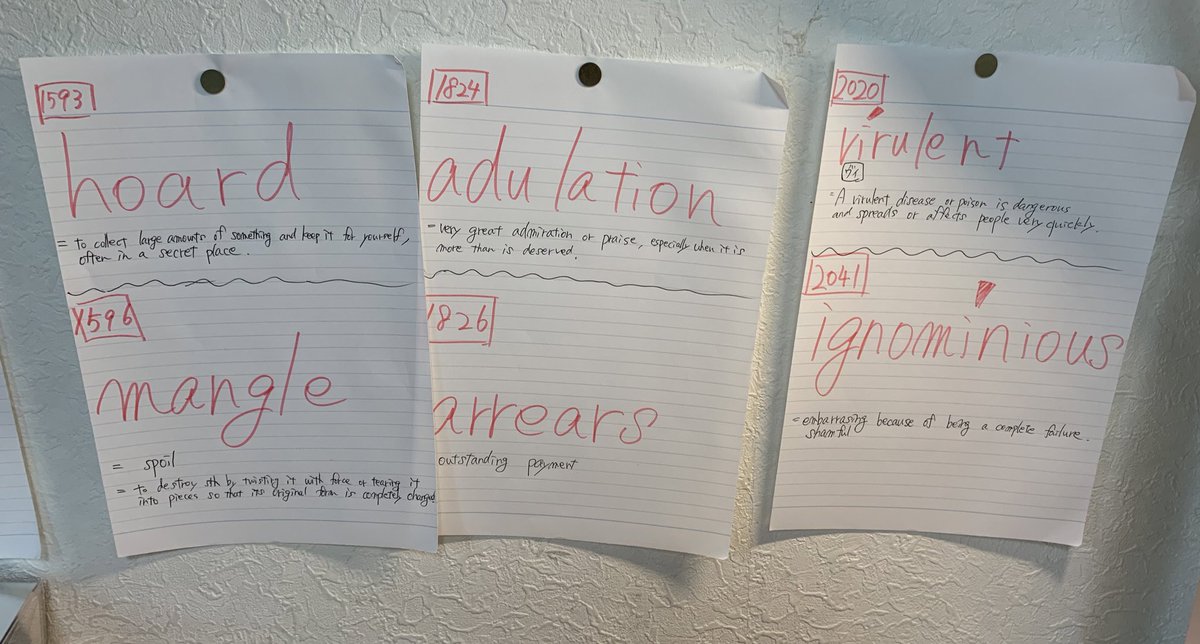 1593
hoard
= to collect large amounts of something and keep it for yourself,
often in a secret place.
1596
mangle
= spoil
= to destroy sth by twisting it with force or tearing it
into pieces so that its original form is completely changed
1824
adulation
= very great admiration or praise, especially when it is
more than is deserved.
1826
arrears
outstanding payment
2020
virulent
ヴィ
= A virulent disease or poison is dangerous
and spreads or affects people very quickly.
2041
ignominious
= embarrasing because of being a complete failure.
shamful